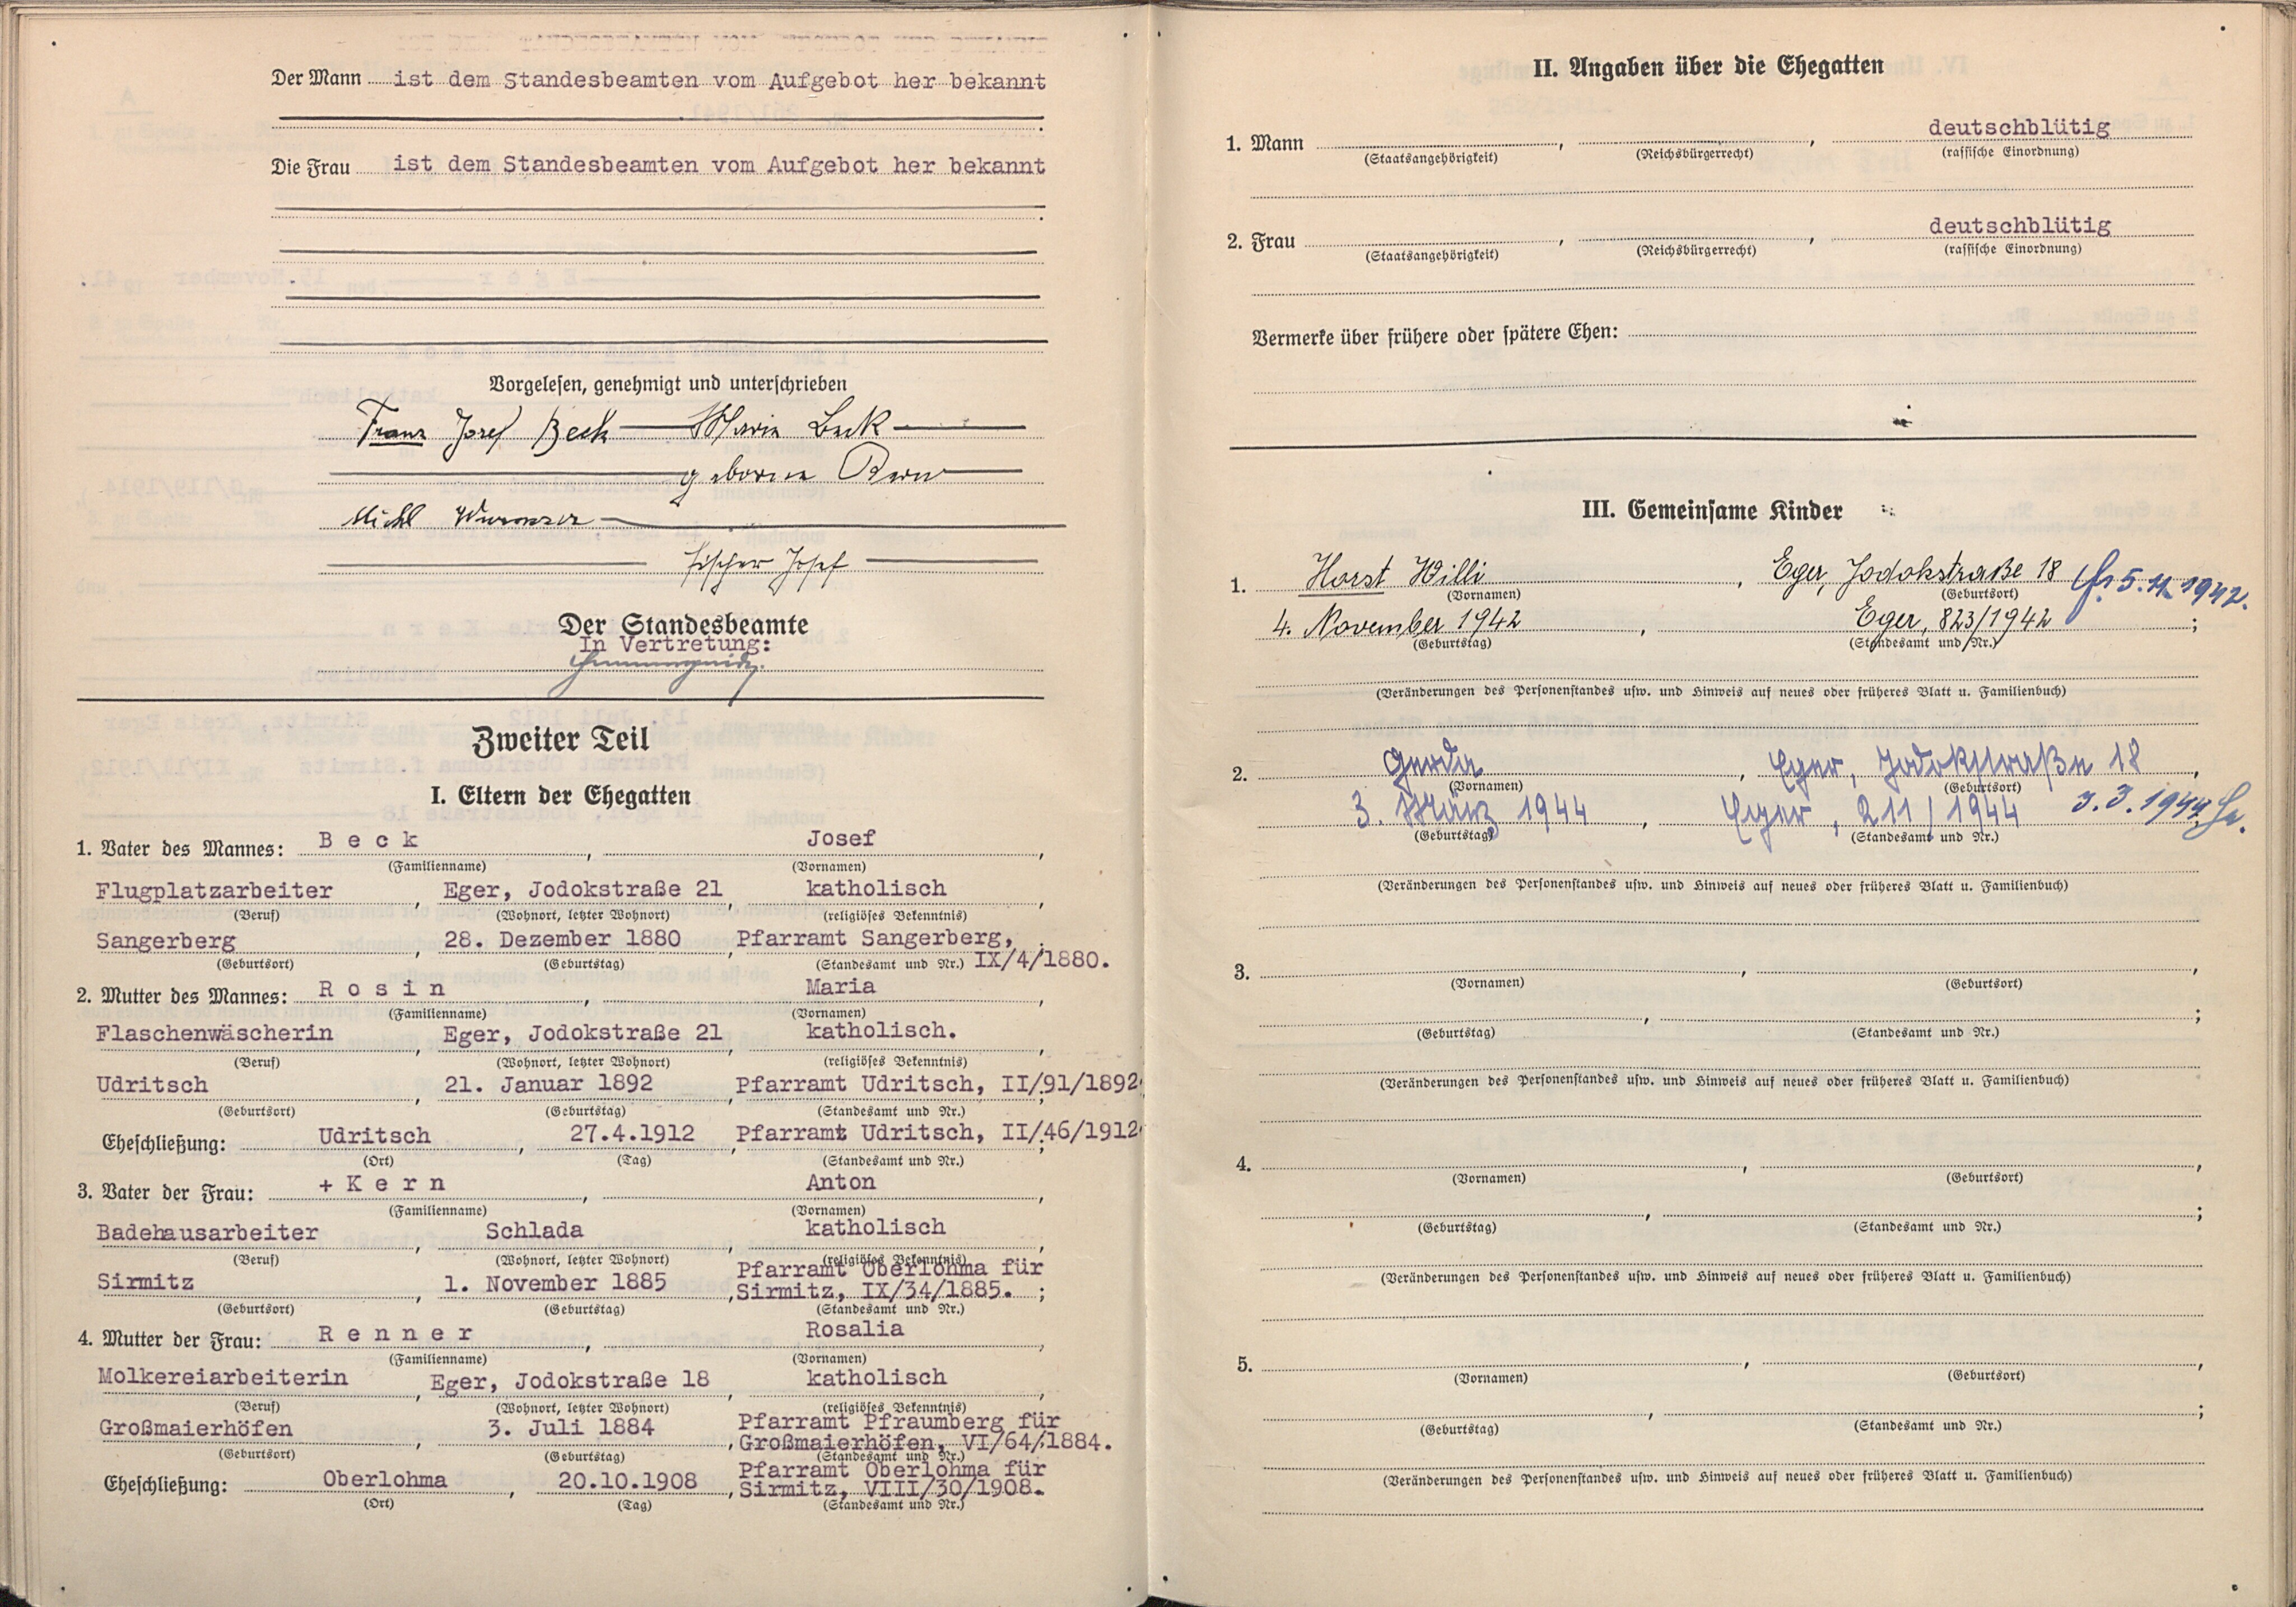 Der Mann ist dem Standesbeamten vom Aufgebot her bekannt
Die Frau ist dem Standesbeamten vom Aufgebot her bekannt
Vorgelesen, genehmigt und unterschrieben
Franz Josef Beck Maria Beck
geborene Kern
Michl
Fischer Josef
Der Standesbeamte
In Vertretung:
Zweiter Teil
I. Eltern der Ehegatten
1. Vater des Mannes: Beck, Josef,
(Familienname) (Vornamen)
Flugplatzarbeiter, Eger, Jodokstraße 21, katholisch,
(Beruf) (Wohnort, letzter Wohnort) (religiöses Bekenntnis)
Sangerberg, 28. Dezember 1880, Pfarramt Sangerberg, ;
(Geburtsort) (Geburtstag) (Standesamt und Nr.) IX/4/1880.
2. Mutter des Mannes: Rosin, Maria,
(Familienname) (Vornamen)
Flaschenwäscherin, Eger, Jodokstraße 21, katholisch.,
(Beruf) (Wohnort, letzter Wohnort) (religiöses Bekenntnis)
Udritsch, 21. Januar 1892, Pfarramt Udritsch, II/91/1892;
(Geburtsort) (Geburtstag) (Standesamt und Nr.)
Eheschließung: Udritsch, 27.4.1912, Pfarramt Udritsch, II/46/1912;
(Ort) (Tag) (Standesamt und Nr.)
3. Vater der Frau: + Kern, Anton,
(Familienname) (Vornamen)
Badehausarbeiter, Schlada, katholisch,
(Beruf) (Wohnort, letzter Wohnort) (religiöses Bekenntnis)
Pfarramt Oberlohma für
Sirmitz, 1. November 1885, Sirmitz, IX/34/1885. ;
(Geburtsort) (Geburtstag) (Standesamt und Nr.)
4. Mutter der Frau: Renner, Rosalia,
(Familienname) (Vornamen)
Molkereiarbeiterin, Eger, Jodokstraße 18, katholisch,
(Beruf) (Wohnort, letzter Wohnort) (religiöses Bekenntnis)
Pfarramt Pfraumberg für
Großmaierhöfen, 3. Juli 1884, Großmaierhöfen, VI/64/1884.
(Geburtsort) (Geburtstag) (Standesamt und Nr.)
Pfarramt Oberlohma für
Eheschließung: Oberlohma, 20.10.1908, Sirmitz, VIII/30/1908.
(Ort) (Tag) (Standesamt und Nr.)
II. Angaben über die Ehegatten
1. Mann , , deutschblütig
(Staatsangehörigkeit) (Reichsbürgerrecht) (rassische Einordnung)
2. Frau , , deutschblütig
(Staatsangehörigkeit) (Reichsbürgerrecht) (rassische Einordnung)
Vermerke über frühere oder spätere Ehen:
III. Gemeinsame Kinder
1. Horst Willi, Eger, Jodokstraße 18 5.11.1942.
(Vornamen) (Geburtsort)
4. November 1942, Eger, 823/1942;
(Geburtstag) (Standesamt und Nr.)
(Veränderungen des Personenstandes usw. und Hinweis auf neues oder früheres Blatt u. Familienbuch)
2. Gerda, Eger, Jodokstraße 18,
(Vornamen) (Geburtsort)
3. März 1944, Eger, 211/1944 3.3.1944.
(Geburtstag) (Standesamt und Nr.)
(Veränderungen des Personenstandes usw. und Hinweis auf neues oder früheres Blatt u. Familienbuch)
3. , ,
(Vornamen) (Geburtsort)
, ;
(Geburtstag) (Standesamt und Nr.)
(Veränderungen des Personenstandes usw. und Hinweis auf neues oder früheres Blatt u. Familienbuch)
4. , ,
(Vornamen) (Geburtsort)
, ;
(Geburtstag) (Standesamt und Nr.)
(Veränderungen des Personenstandes usw. und Hinweis auf neues oder früheres Blatt u. Familienbuch)
5. , ,
(Vornamen) (Geburtsort)
, ;
(Geburtstag) (Standesamt und Nr.)
(Veränderungen des Personenstandes usw. und Hinweis auf neues oder früheres Blatt u. Familienbuch)